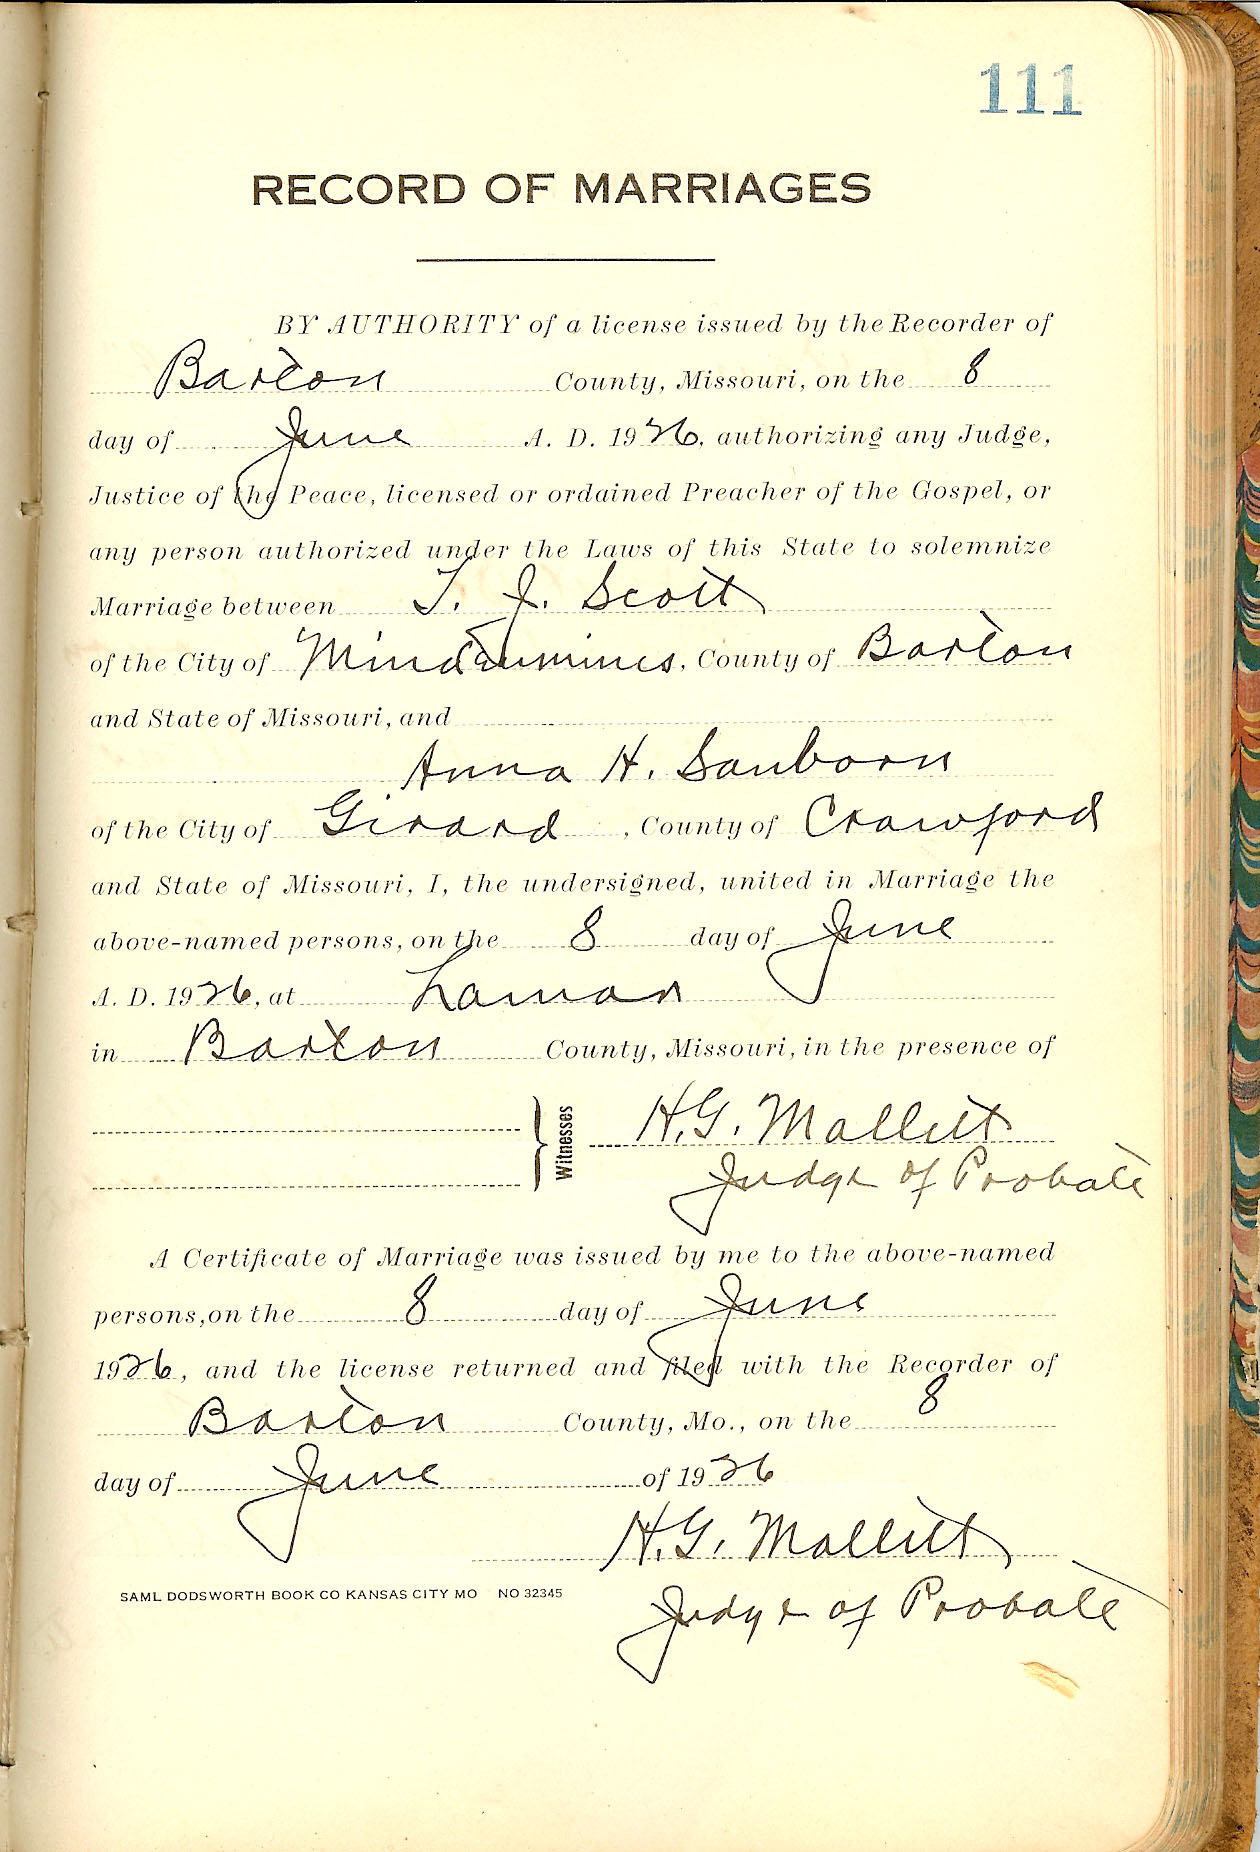 111
RECORD OF MARRIAGES
BY AUTHORITY of a license issued by the Recorder of
Barton County, Missouri, on the 8
day of June A. D. 1926, authorizing any Judge,
Justice of the Peace, licensed or ordained Preacher of the Gospel, or
any person authorized under the Laws of this State to solemnize
Marriage between T. J. Scott
of the City of Mindenmines, County of Barton
and State of Missouri, and
Anna H. Sanborn
of the City of Girard, County of Crawford
and State of Missouri, I, the undersigned, united in Marriage the
above-named persons, on the 8 day of June
A. D. 1926, at Lamar
in Barton County, Missouri, in the presence of
Witnesses H.G. Mallitt
Judge of Probate
A Certificate of Marriage was issued by me to the above-named
persons, on the 8 day of June
1926, and the license returned and filed with the Recorder of
Barton County, Mo., on the 8
day of June of 1926
H.G. Mallitt
Judge of Probate
SAML DODSWORTH BOOK CO KANSAS CITY MO NO 32345